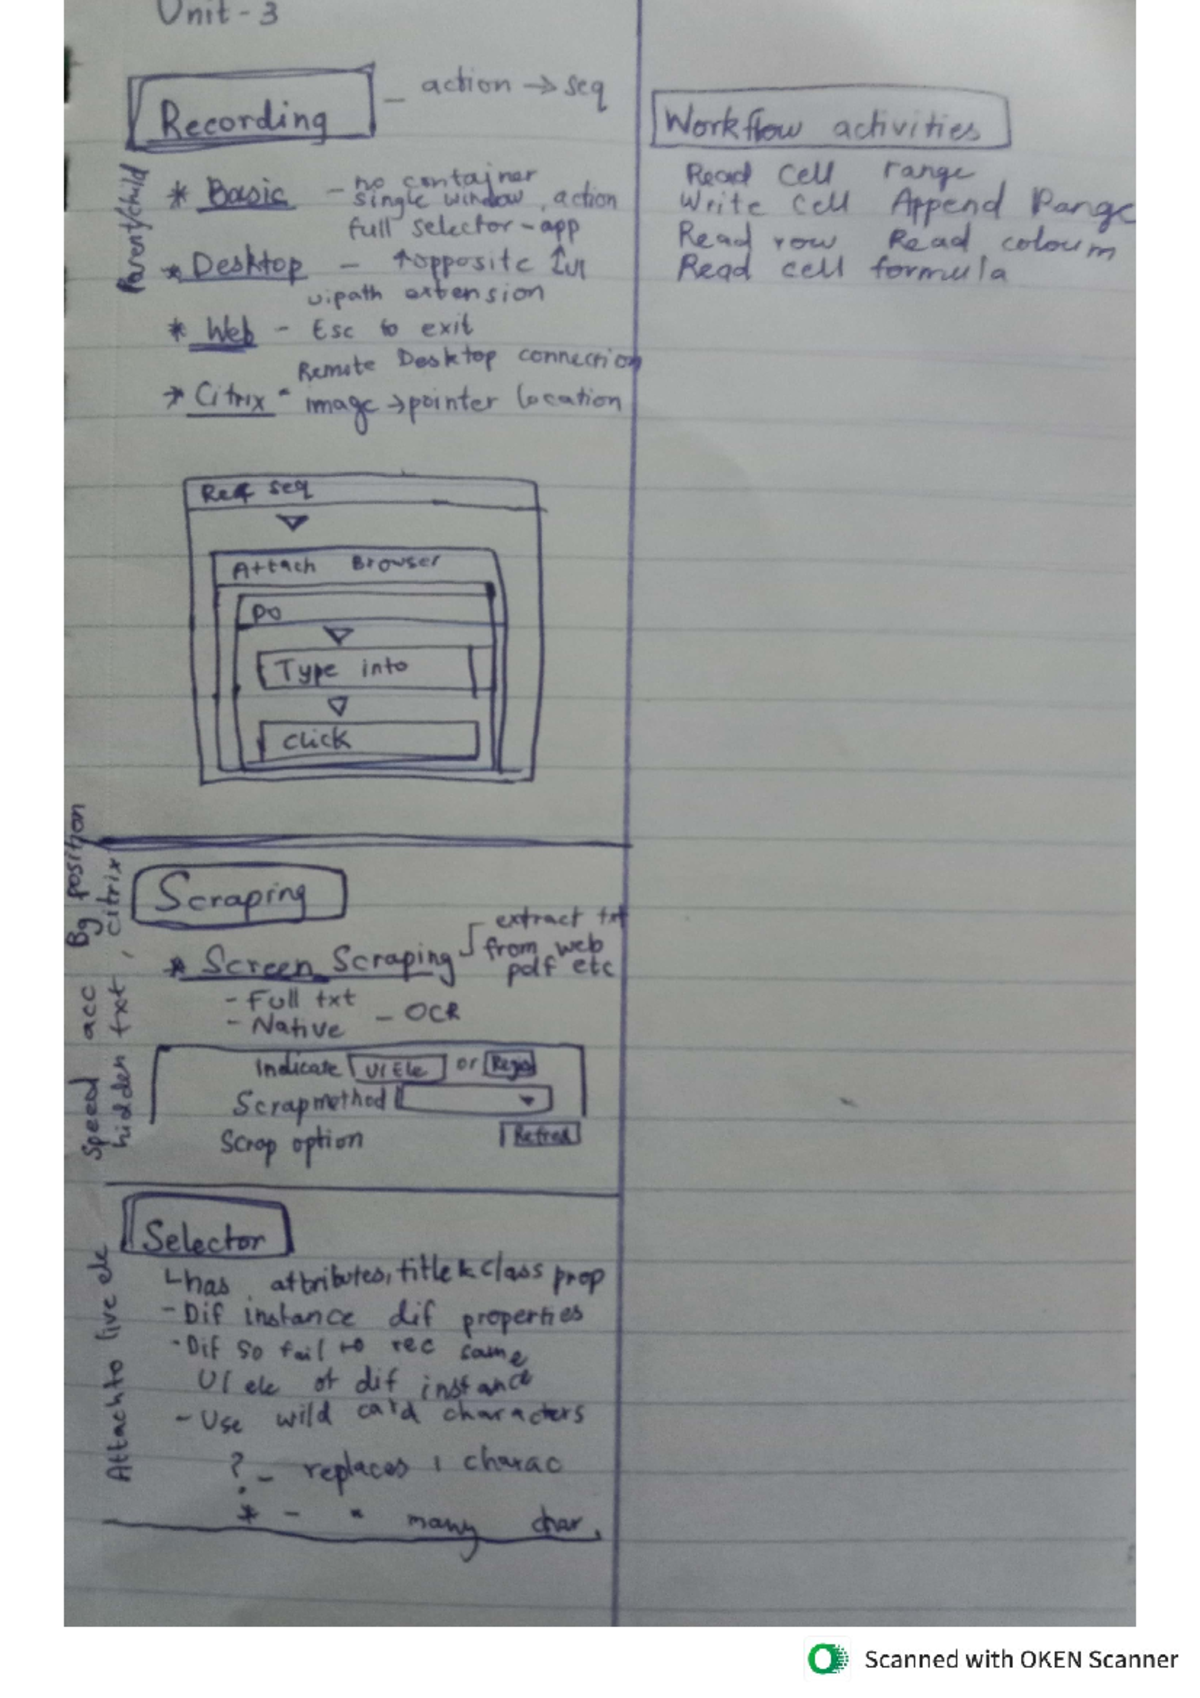 Unit - 3
Recording - action → seq
Parent/child
* Basic - no container
single window, action
full selector - app
* Desktop - ↑opposite
uipath extension
* Web - Esc to exit
Remote Desktop connection
* Citrix - image → pointer location
Rec seq
Attach Browser
Do
Type into
Click
Scraping
Speed acc Bg position
hidden txt, citrix
* Screen Scraping
extract txt
from web
pdf etc
- Full txt
- Native - OCR
Indicate UI Ele or Regio
Scrapmethod
Scrop option Refres
Selector
Attach to live ele
has attributes, title & class prop
- Dif instance dif properties
- Dif so fail to rec same
UI ele of dif instance
- Use wild card characters
? - replaces 1 charac
* - " many char.
Workflow activities
Read cell range
Write cell Append Range
Read row Read coloum
Read cell formula
Scanned with OKEN Scanner